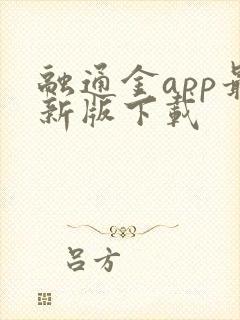 融通金app最
新版下载
吕方